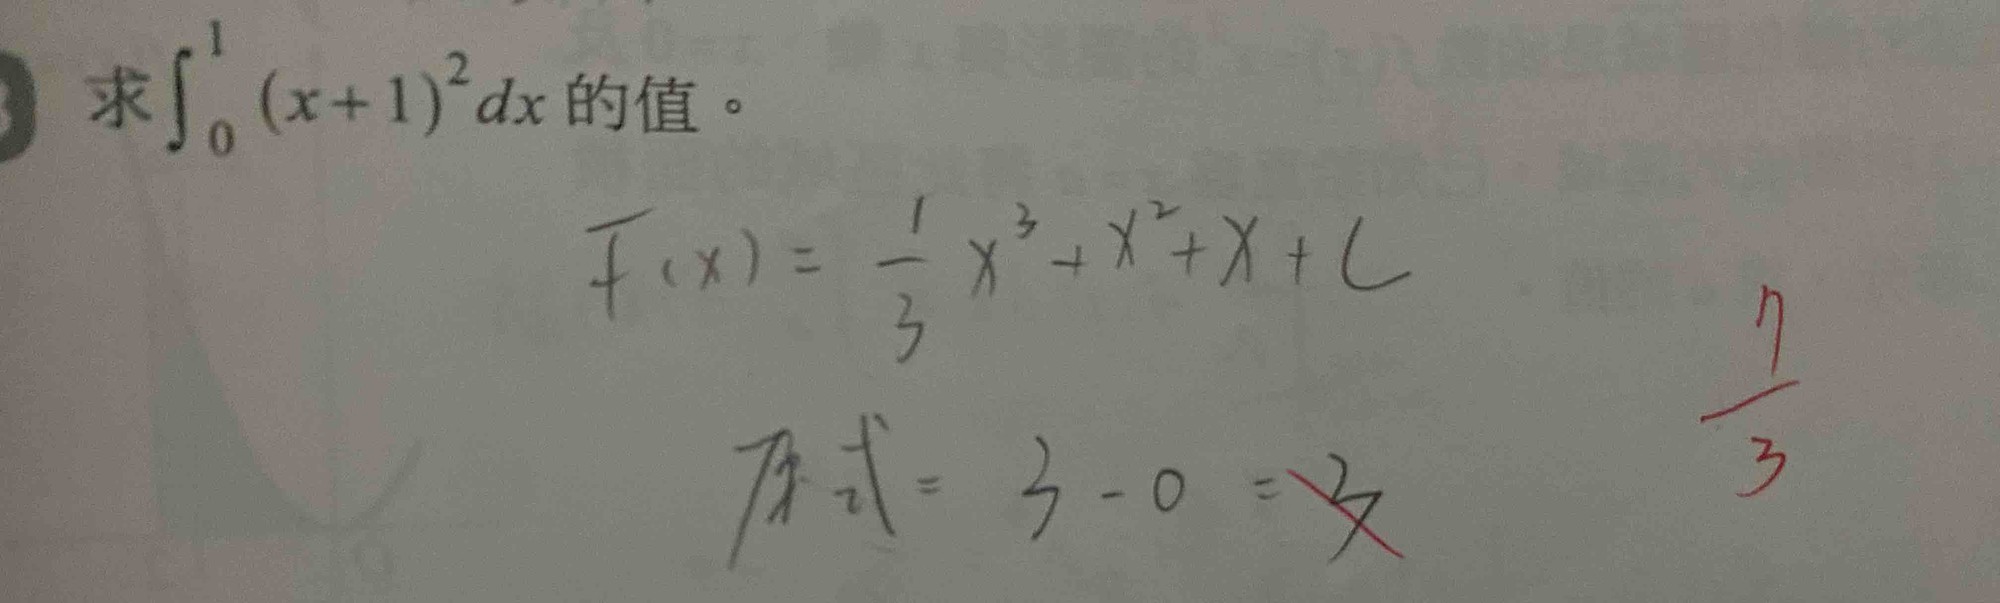 求∫₀¹(x+1)²dx的值。
F(x) = 1/3 x³ + x² + x + C
原式 = 3 - 0 = 3
7/3